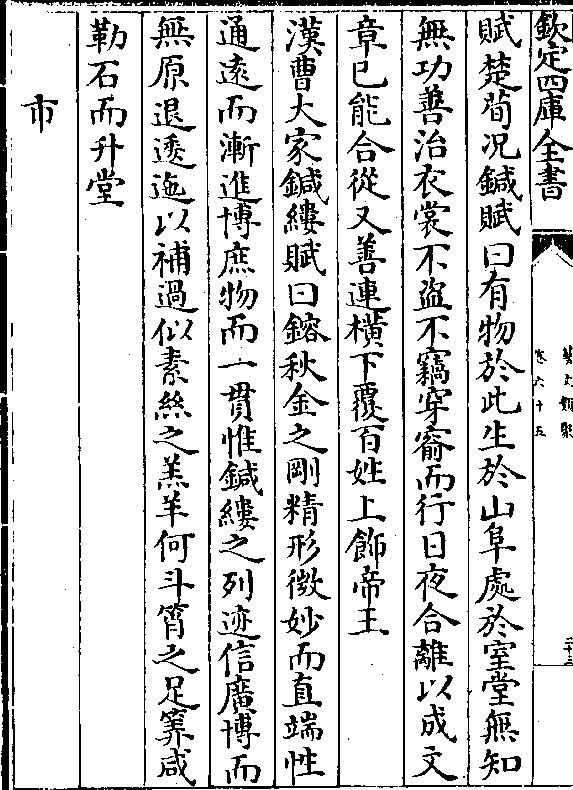 欽定四庫全書
賦楚荀况鍼賦曰有物於此生於山阜處於室堂無知
無功善治衣裳不盜不竊穿窬而行日夜合離以成文
章已能合從又善連橫下覆百姓上飾帝王
漢曹大家鍼縷賦曰鎔秋金之剛精形微妙而直端性
通逺而漸進博庶物而一貫惟鍼縷之列迹信廣博而
無原退逶迤以補過似素絲之羔羊何斗筲之足筭咸
勒石而升堂
市